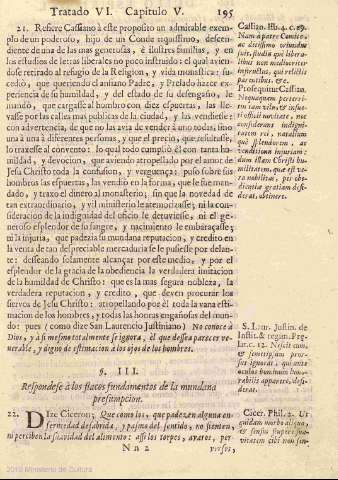 Tratado VI. Capitulo V. 195
21. Refiere Cassiano à este proposito un admirable exem-
plo de un poderoso, hijo de un Conde riquissimo, descen-
diente de una de las mas generosas, è ilustres familias, y en
los estudios de letras liberales no poco instruido: el qual avien-
dose retirado al refugio de la Religion, y vida monastica: su-
cediò, que queriendo el anciano Padre, y Prelado hazer ex-
periencia de su humildad, y del estado de su desengaño, le
mandò, que cargasse al hombro con diez espuertas, las lle-
vasse por las calles mas publicas de la ciudad, y las vendiesse:
con advertencia, de que no las avia de vender à uno todas, sino
una à una à diferentes personas, y que el precio, que
lo traxesse al convento: lo qual todo cumpliò èl con tanta hu-
mildad, y devocion, que aviendo atropellado por el amor de
Jesu Christo toda la confusion, y verguença: puso sobre sus
hombros las espuertas, las vendiò en la forma, que le fue man-
dado, y traxo el dinero al monasterio; sin que la novedad de
tan extraordinario, y vil ministerio le atemorizasse; ni la con-
sideracion de la indignidad del oficio le detuviesse, ni el ge-
neroso esplendor de su sangre, y nacimiento le embaraçasse;
ni la injuria, que padezia su mundana reputacion, y credito en
la venta de tan despreciable mercaduria se le pusiesse por delan-
te: deseando solamente alcançar por este medio, y por el
esplendor de la gracia de la obediencia la verdadera imitacion
de la humildad de Christo: que es la mas segura nobleza, la
verdadera reputacion, y credito, que deven procurar los
siervos de Jesu Christo: atropellando por èl toda la vana esti-
macion de los hombres, y todas las honras engañosas del mun-
do: pues (como dize San Laurencio Justiniano) No conoce à
Dios, y à si mesmo totalmente se ignora, èl que desea parecer ve-
nerable, y digno de estimacion à los ojos de los hombres.
§. III.
Respondese à los flacos fundamentos de la mundana
presumpcion.
22. Dize Ciceron; Que como los, que padezen alguna en-
fermedad desabrida, y pasmo del sentido, no sienten,
ni perciben la suavidad del alimento: assi los torpes, avaros, per-
Nn 2 versos,
Cassian. lib. 4. c. 29.
Nam à patre Comite,
ac ditissimo oriundus
fuit, studijs quo libera-
libus non mediocriter
instructus, qui relictis
parentibus, &c.
Prosequitur Cassian.
Nequaquam
tam vilis & insue-
ti officij novitate, nec
considerans indigni-
tatem rei, natalium
quò splendorem, ac
venditionis injuriam:
dum istam Christi hu-
militatem, quæ est ve-
ra nobilitas, per obe-
dientiæ gratiam deside-
rat, obtinere.
S. Laur. Justin. de
c. 12. Nescit eum,
& semetipsum pror-
sus ignorat, qui ante
conditionem huma-
nam
siderat.
Cicer. Phil. 2. Ut
quidam morbo aliquo,
& sensus stupore sua-
vitatem cibi non sen-
2010 Ministerio de Cultura